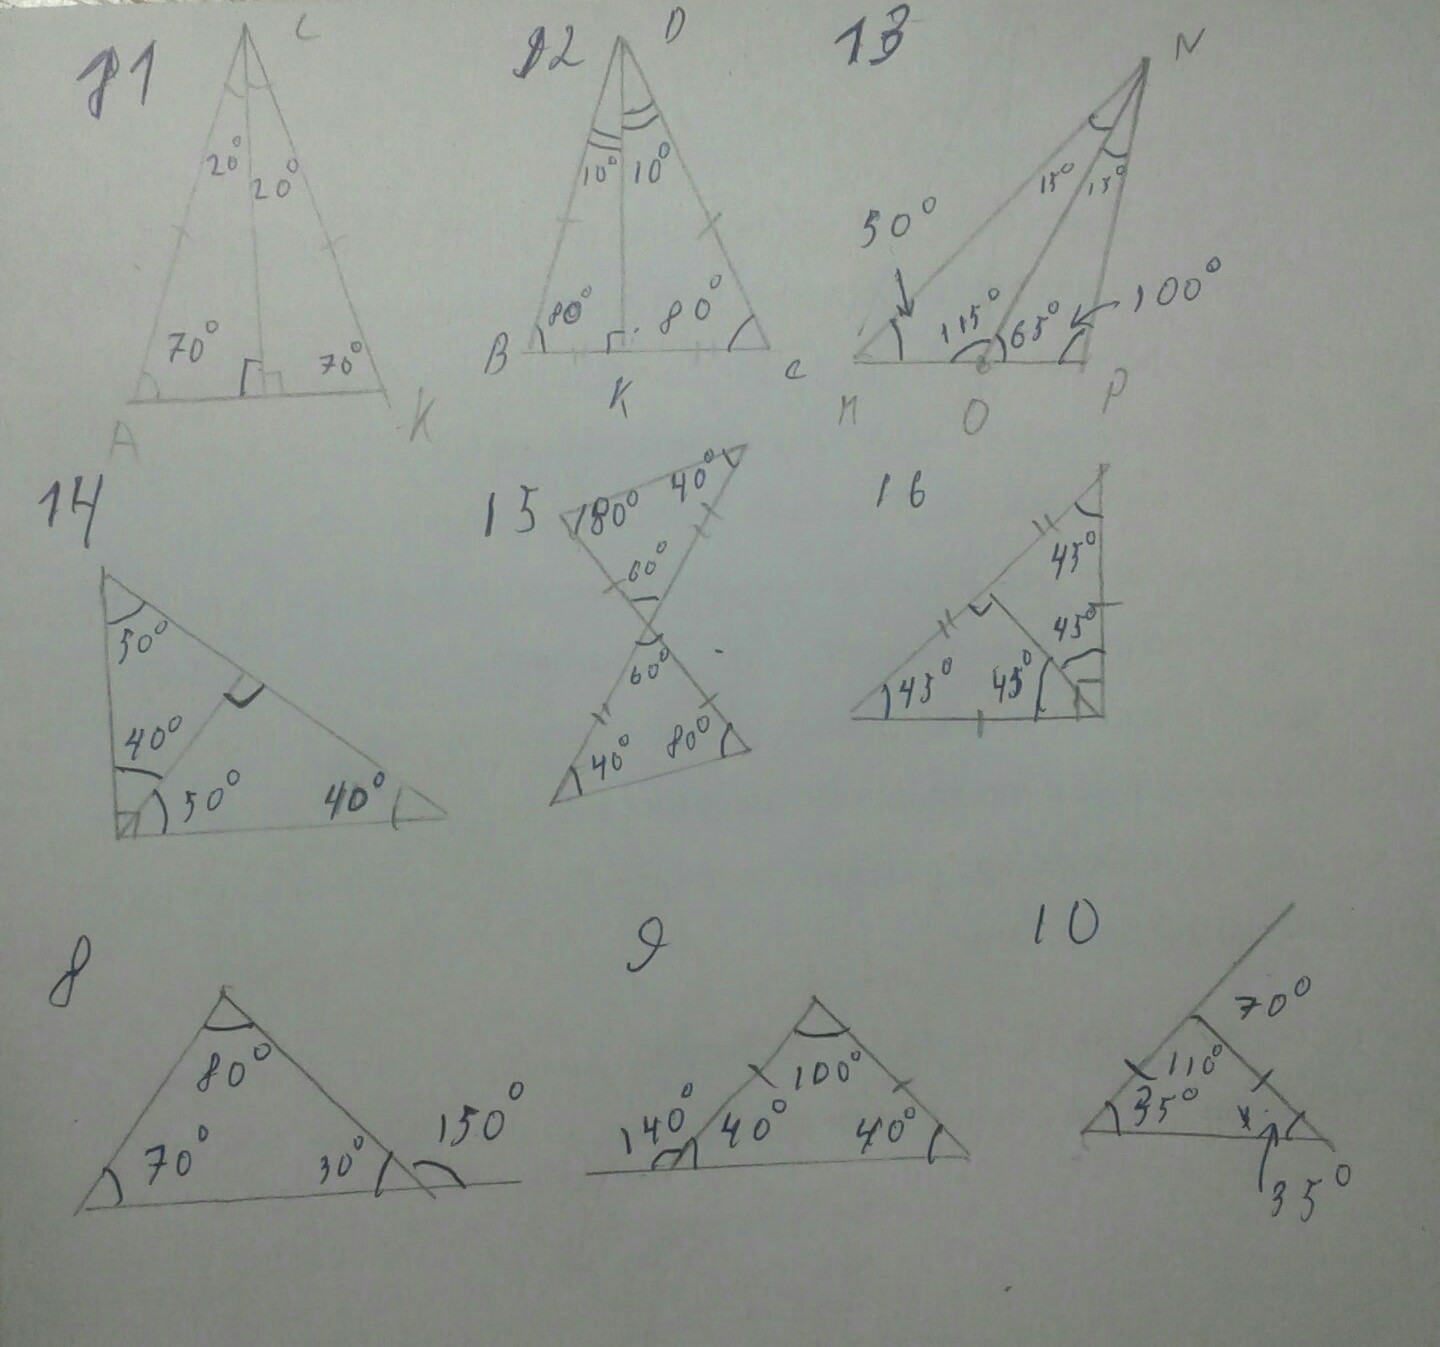 11 C
20° 20°
70° 70°
A K
12 D
10° 10°
80° 80°
B K C
13 N
15° 15°
50° 115° 65° 100°
M O P
14
50°
40°
50° 40°
15
80° 40°
60°
60°
40° 80°
16
45°
45°
45° 45°
8
80°
70° 30° 150°
9
100°
140° 40° 40°
10
70°
110°
35° x
35°